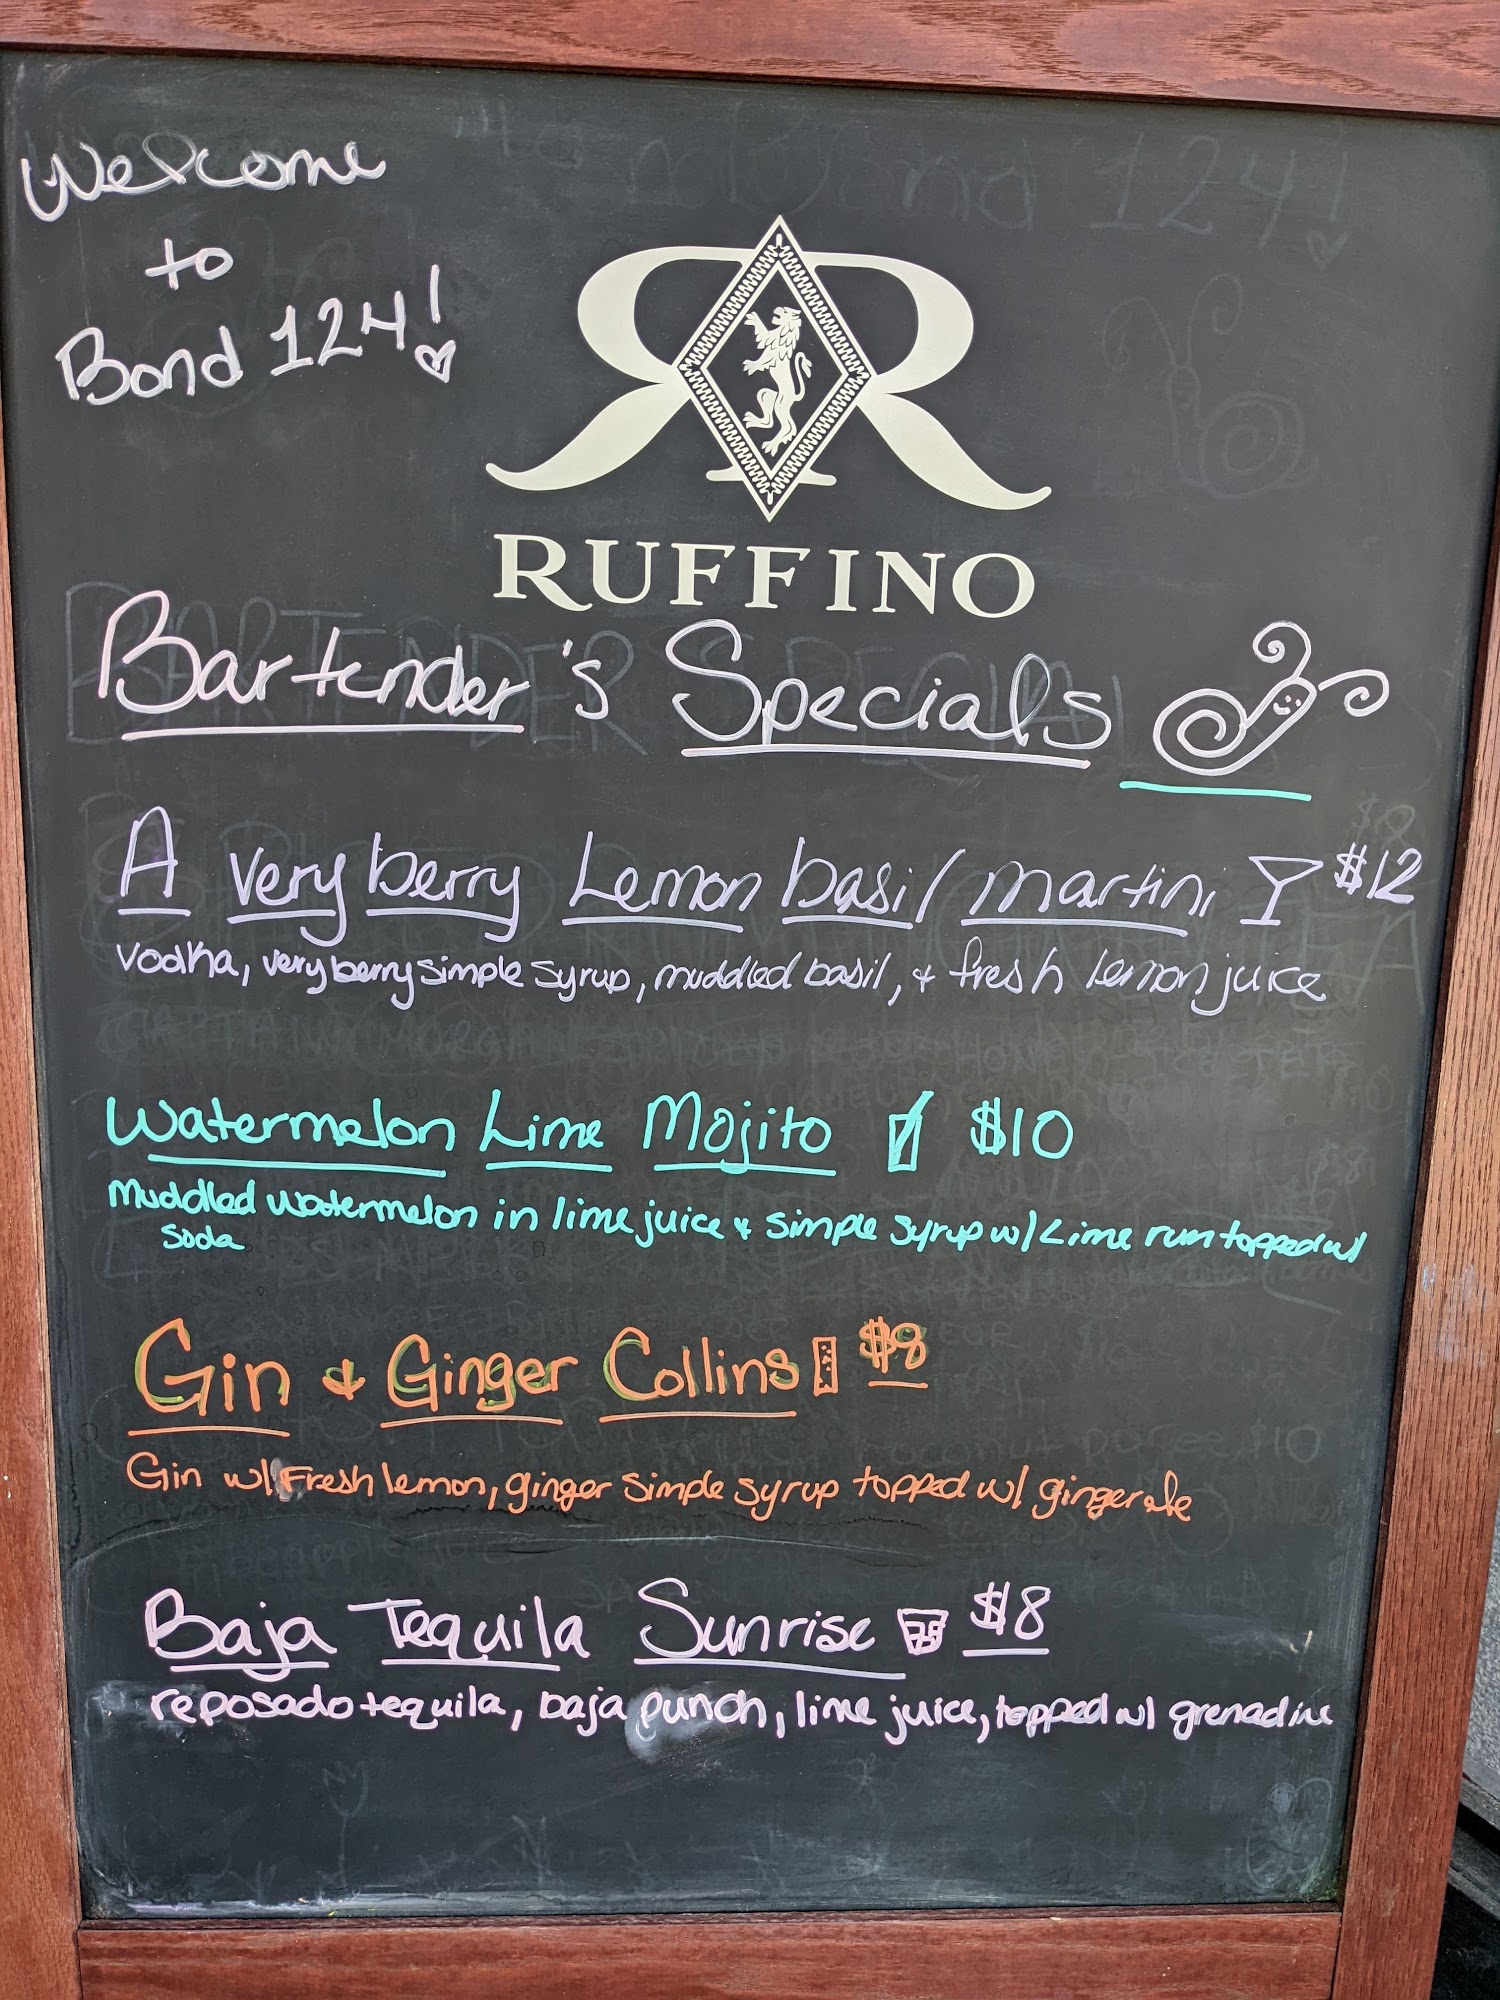 Welcome
to
Bond 124!
RUFFINO
Bartender's Specials
A very berry Lemon basil martini $12
vodka, very berry simple syrup, muddled basil, & fresh lemon juice
Watermelon Lime Mojito $10
Muddled watermelon in lime juice & simple syrup w/ Lime rum topped w/
soda
Gin & Ginger Collins $8
Gin w/ Fresh lemon, ginger simple syrup topped w/ ginger ale
Baja Tequila Sunrise $8
reposado tequila, baja punch, lime juice, topped w/ grenadine